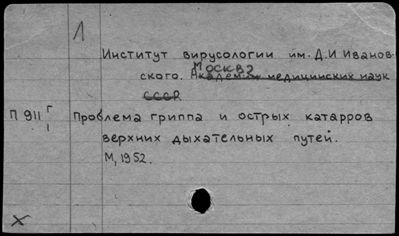 1
Институт вирусологии им. Д.И Иванов-
Москва
ского. Академии медицинских наук
СССР
П 911 Г/1 Проблема гриппа и острых катарров
верхних дыхательных путей.
М, 1952.
X